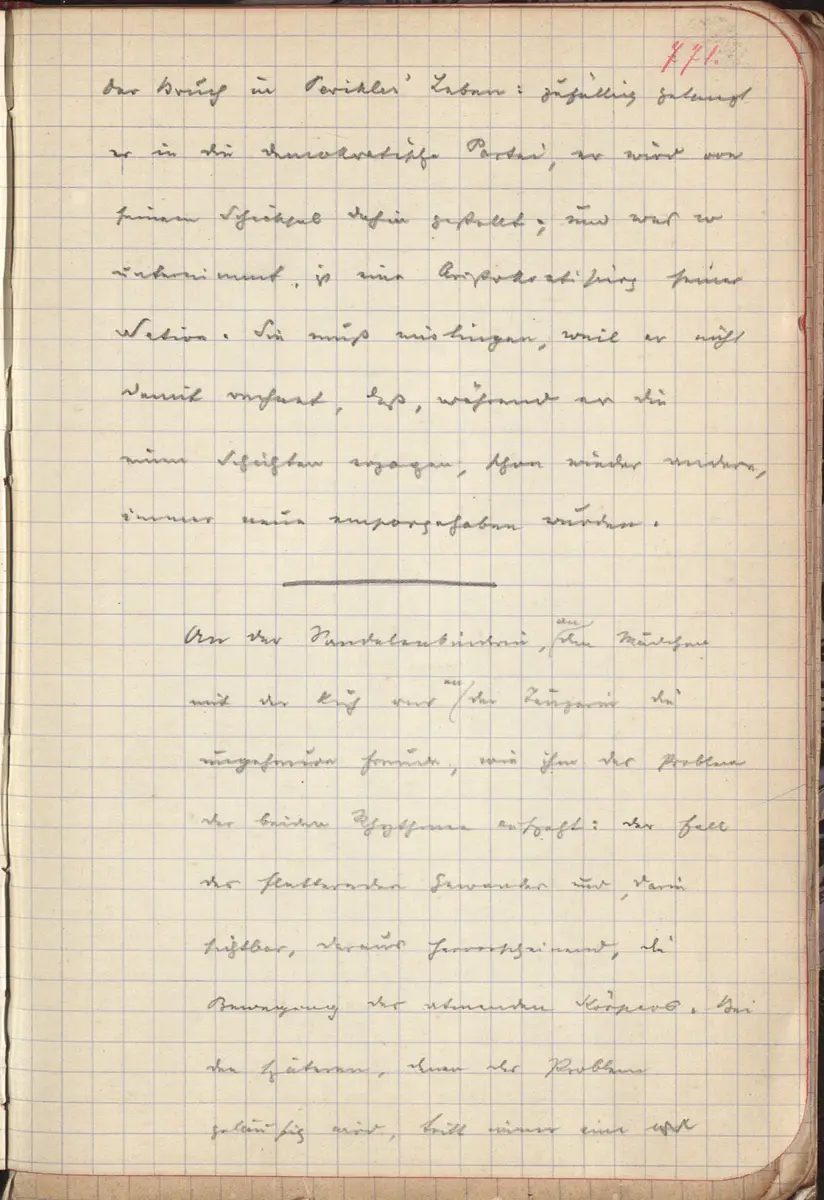 771.
der Bruch in Perikles' Leben: zufällig gelangt
er in die demokratische Partei, er wird von
seinem Schicksal dahin gestellt; und was er
unternimmt, ist eine Aristokratisirg seiner
Nation. Sie muß mislingen, weil er nicht
damit rechnet, daß, während er die
einen Schichten erzogen, schon wieder andere,
immer neue emporgehoben wurden.
An der Sandalenbinderin, an den Mädchen
mit der Kuh und an der Tänzerin die
ungeheure Freude, wie ihm das Problem
der beiden Rhythmen aufgeht: der Fall
des flatternden Gewandes und, darin
sichtbar, daraus hervorscheinend, die
Bewegung des atmenden Körpers. Bei
den späteren, denen das Problem
geläufig wird, tritt immer eine